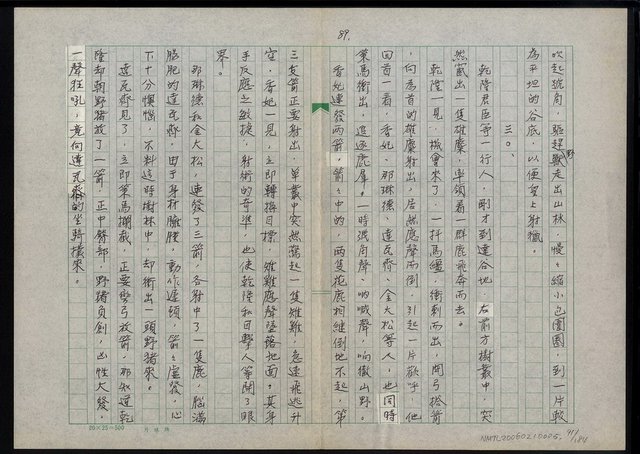 89.
吹起號角,驅野獸走出山林,慢慢縮小包圍圈,到一片較
為平坦的谷底,以便皇上射獵。
三〇、
乾隆君臣等一行人,剛才到達谷地,右前方樹叢中,突
然竄出一隻雄麋,率領着一群鹿飛奔而去。
乾隆一見,機會來了,一抖馬韁,衝刺而出,開弓搭箭
,向為首的雄麋射出,居然應聲而倒,引起一片歡呼,他
回首一看,香妃、那琳德、達瓦齊、金大松等人,也同時
策馬衝出,追逐鹿群。一時號角聲、吶喊聲,响徹山野。
香妃連發兩箭,箭箭中的,兩隻花鹿相繼倒地不起,第
三支箭正要射出,草叢中突然驚起一隻雉雞,急速飛逃升
空,香妃一見,立即轉換目標,雉雞應聲墜落地面。其身
手反應之敏捷,射術的奇準,也使乾隆和目擊人等開了眼
界。
那琳德和金大松,連發了三箭,各射中了一隻鹿,腦滿
腸肥的達瓦齊,由于身材臃腫,動作遲頓,箭箭虛發,心
下十分懊惱,不料這時樹林中,却衝出一頭野豬來。
達瓦齊見了,立即策馬攔截,正要彎弓放箭,那知道乾
隆却朝野豬放了一箭,正中臀部,野豬負創,凶性大發,
一聲狂吼,竟向達瓦齊的坐騎撲來。
20×25=500
NMTL20050210005
91/184